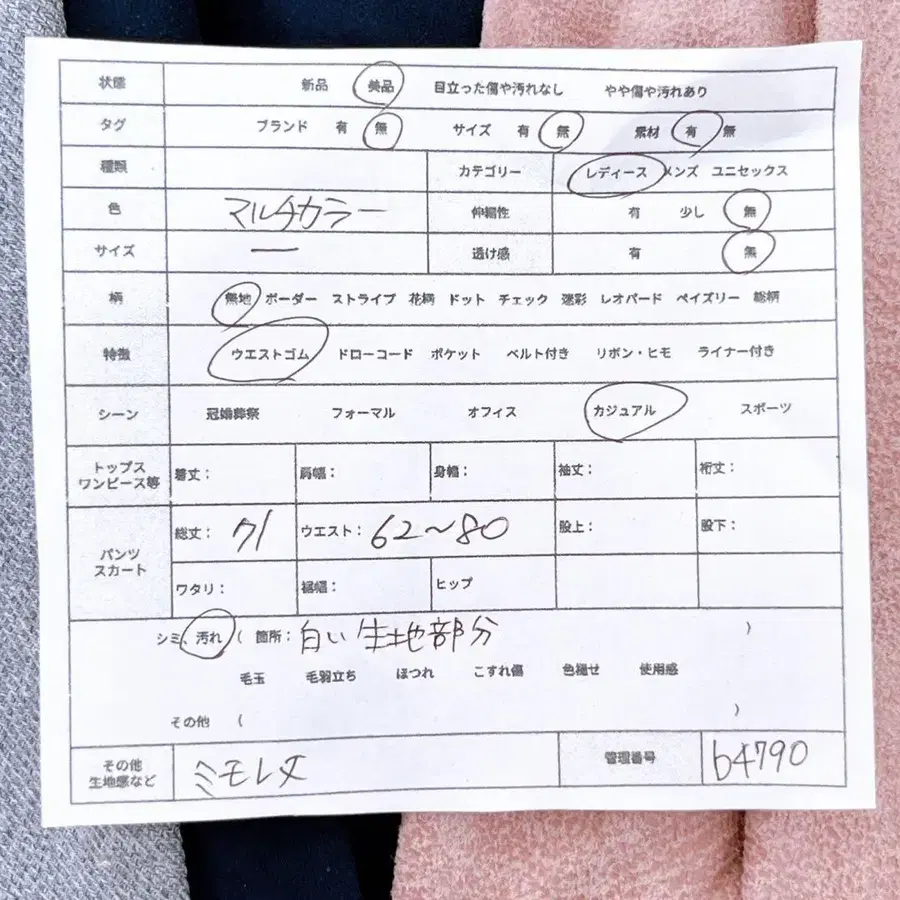 状態 新品 美品 目立った傷や汚れなし やや傷や汚れあり
タグ ブランド 有 無 サイズ 有 無 素材 有 無
種類 カテゴリー レディース メンズ ユニセックス
色 マルチカラー 伸縮性 有 少し 無
サイズ ー 透け感 有 無
柄 無地 ボーダー ストライプ 花柄 ドット チェック 迷彩 レオパード ペイズリー 総柄
特徴 ウエストゴム ドローコード ポケット ベルト付き リボン・ヒモ ライナー付き
シーン 冠婚葬祭 フォーマル オフィス カジュアル スポーツ
トップス
ワンピース等 着丈: 肩幅: 身幅: 袖丈: 裄丈:
パンツ
スカート 総丈: 71 ウエスト: 62〜80 股上: 股下:
ワタリ: 裾幅: ヒップ
シミ、汚れ ( 箇所: 白い生地部分 )
毛玉 毛羽立ち ほつれ こすれ傷 色褪せ 使用感
その他 ( )
その他
生地感など ミモレ丈 管理番号 b4790